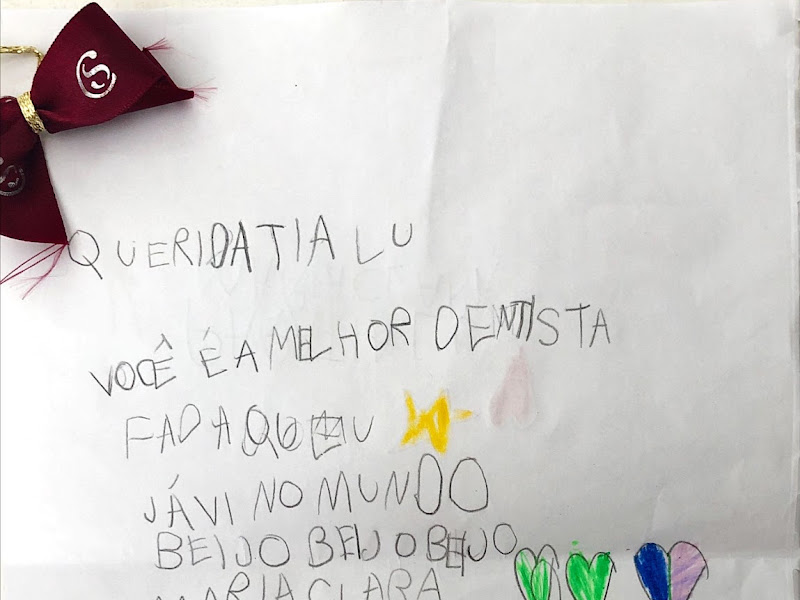 QUERIDA TIA LU
VOCÊ É A MELHOR DENTISTA
FADA QUE EU
JÁ VI NO MUNDO
BEIJO BEIJO BEIJO
MARIA CLARA